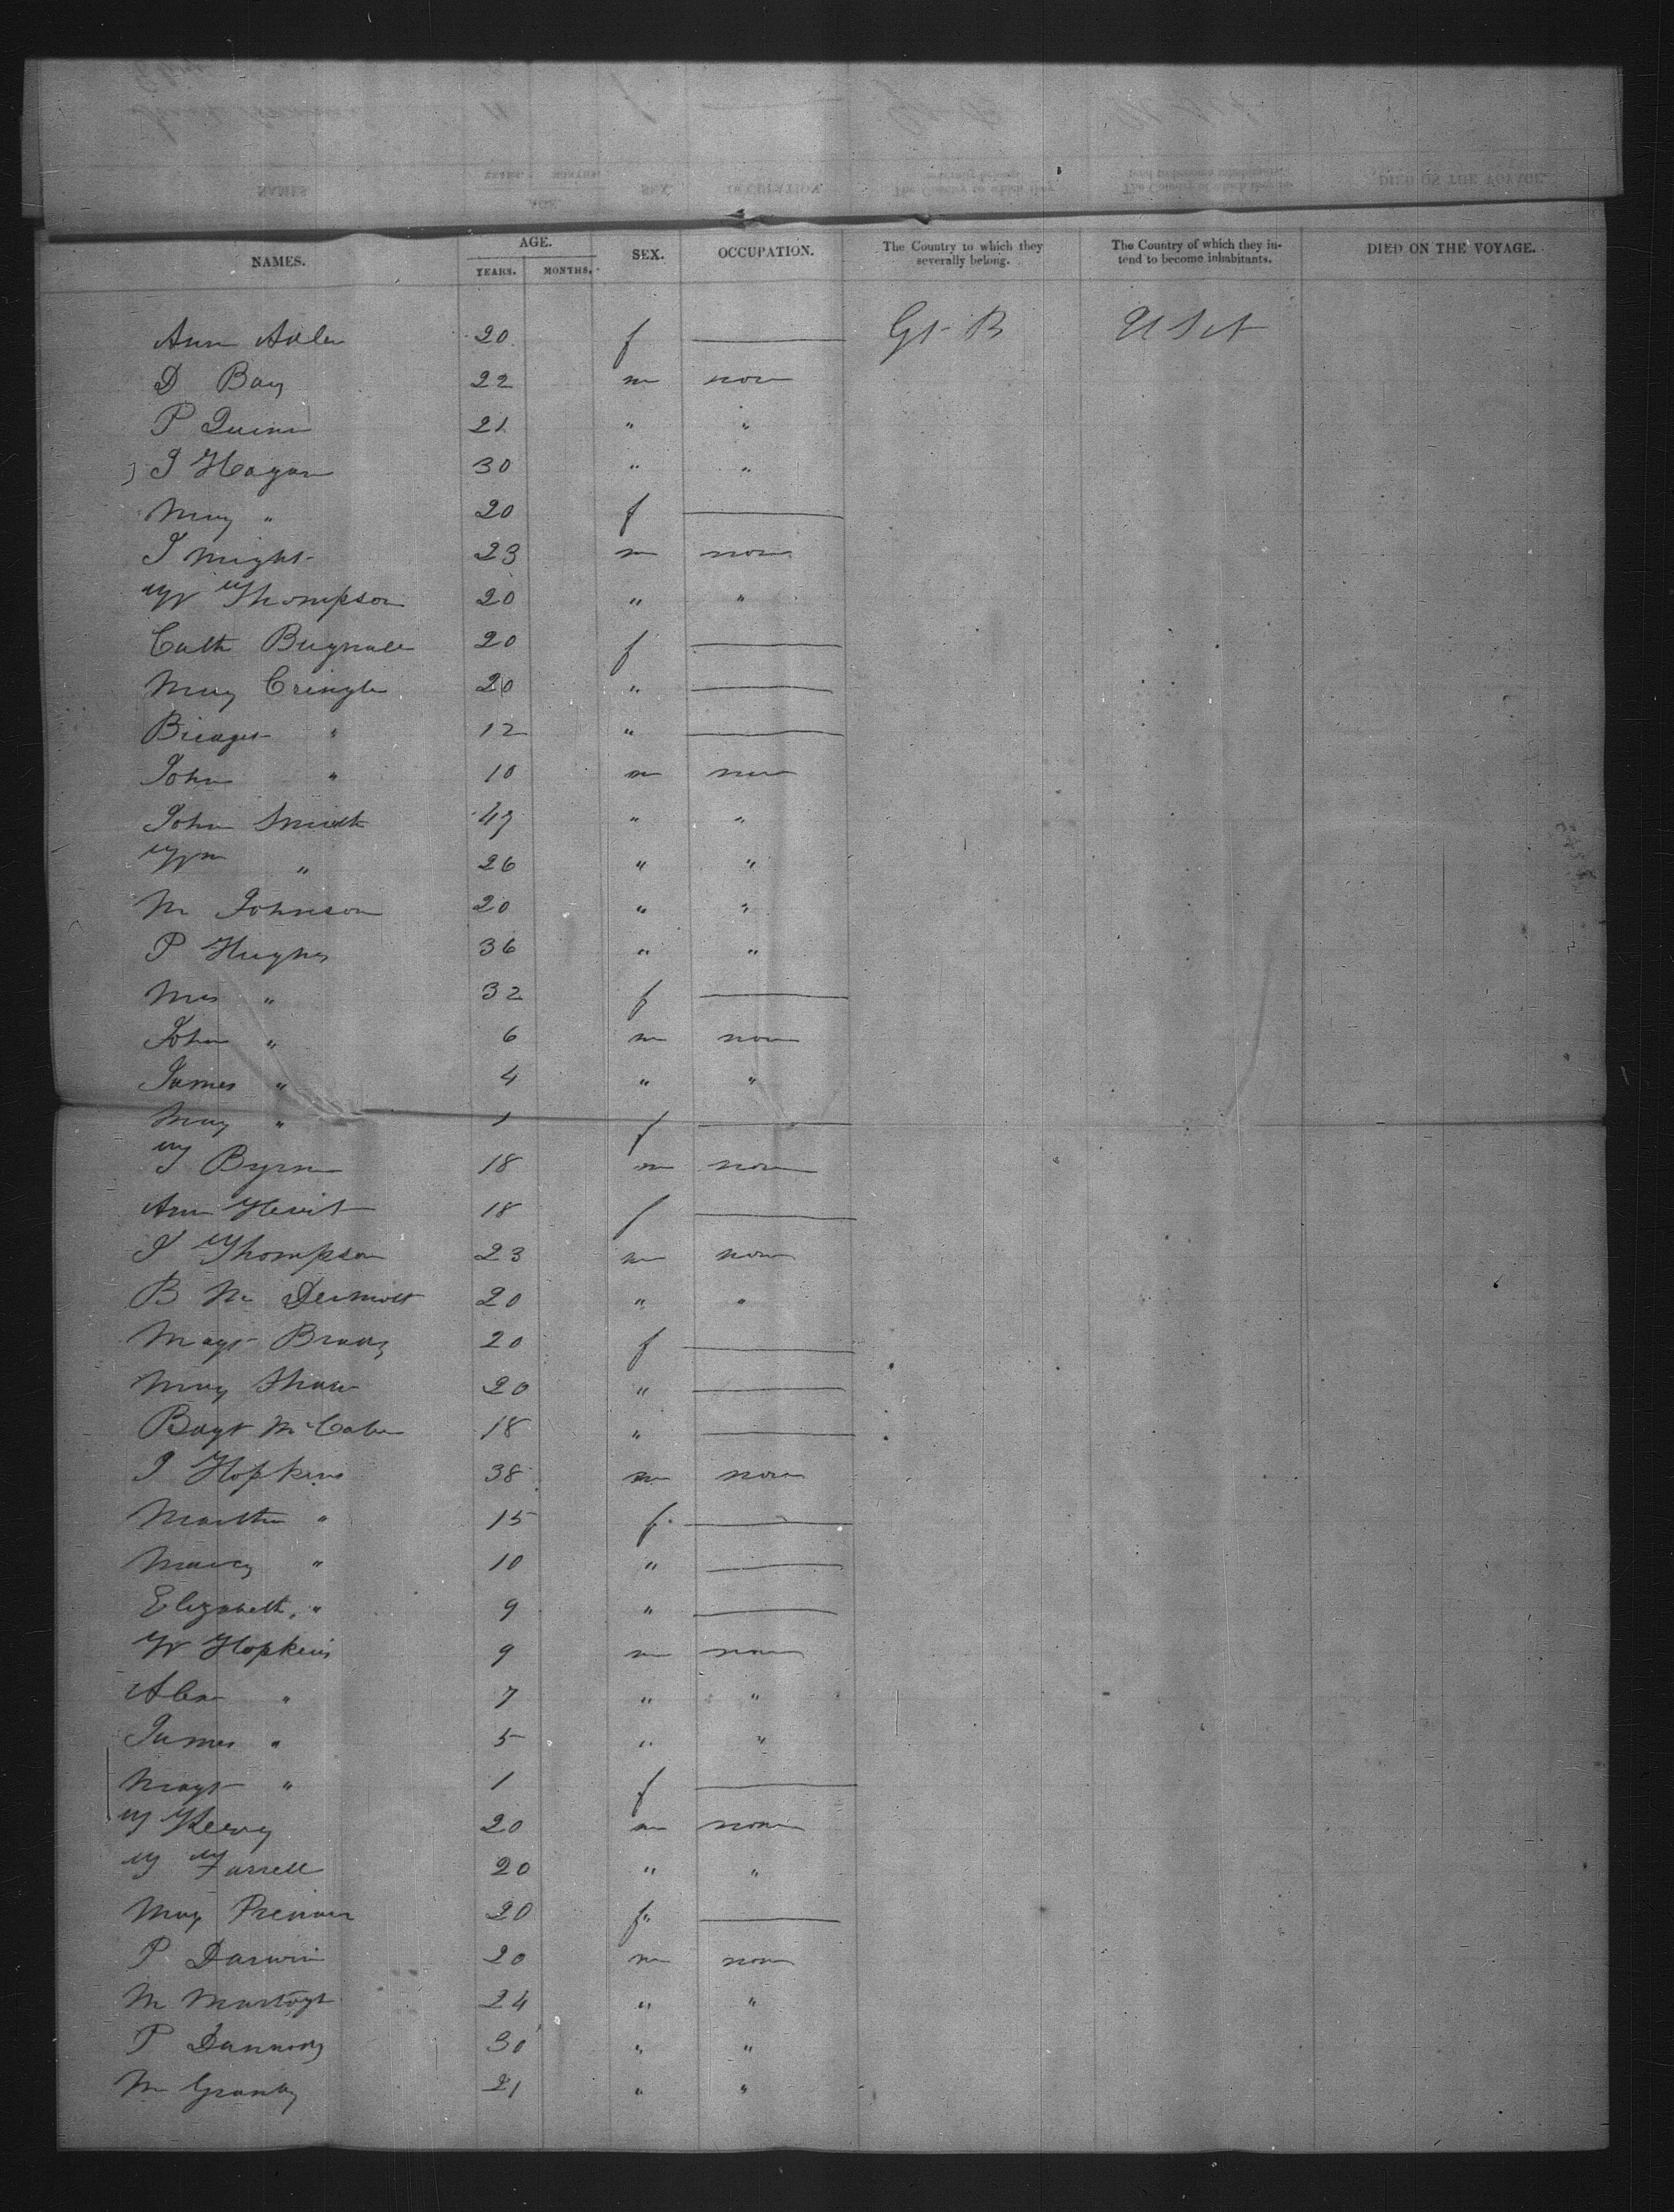 NAMES. AGE. YEARS. MONTHS. SEX. OCCUPATION. The Country to which they severally belong. The Country of which they intend to become inhabitants. DIED ON THE VOYAGE.
Ann 20 f — Gt B U S A
D Bay 22 m none
P Quinn 21 " "
J Hagan 30 " "
Mary " 20 f —
J 23 m none
W Thompson 20 " "
Cath 20 f —
Mary Cringle 20 " —
Bridget " 12 " —
John " 10 m none
John Smith 47 " "
Wm " 26 " "
M Johnson 20 " "
P Hughes 36 " "
Mrs " 32 f —
John " 6 m none
James " 4 " "
Mary " 1 f —
T Byrne 18 m none
Ann 18 f —
J Thompson 23 m none
B Mc Dermott 20 " "
Magt Brady 20 f —
Mary Shaw 20 " —
Bdgt McCabe 18 " —
J Hopkins 38 m none
Martha " 15 f —
" 10 " —
Elizabeth " 9 " —
W Hopkins 9 m none
" 7 " "
James " 5 " "
Magt " 1 f —
T 20 m none
T Farrell 20 " "
Mary 20 f —
P Darwin 20 m none
M 24 " "
P 30 " "
M 21 " "